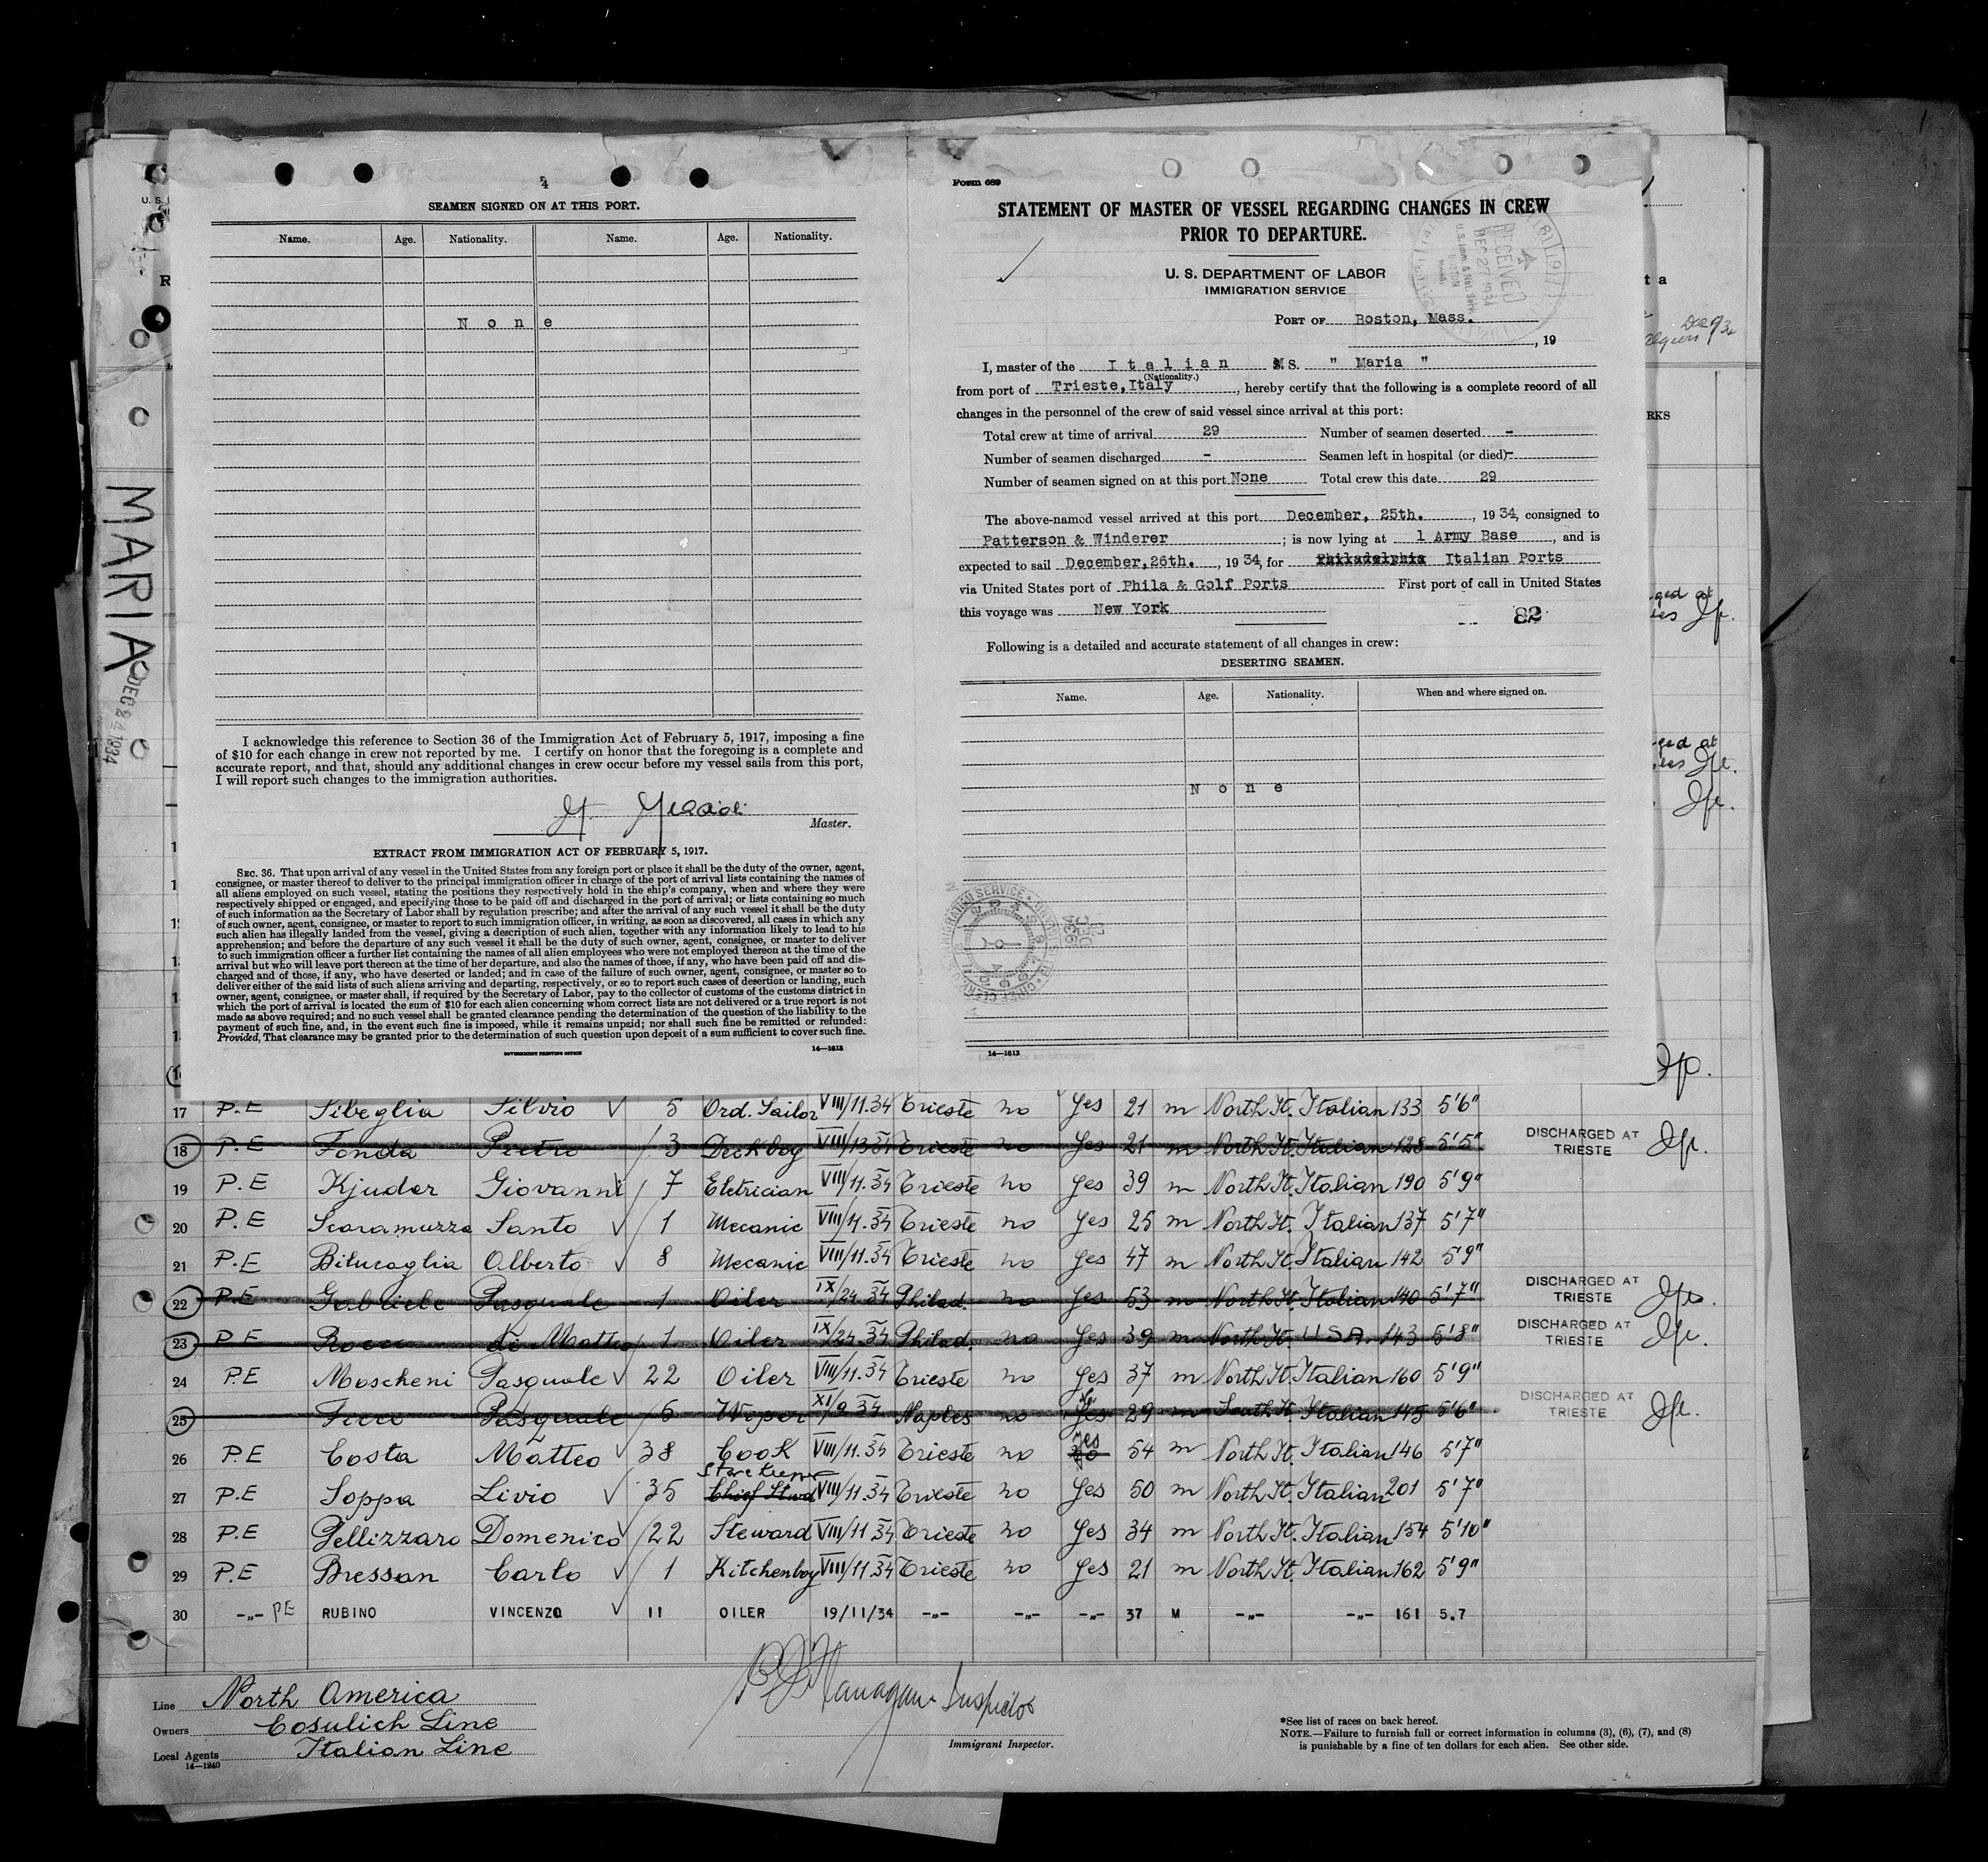 4
SEAMEN SIGNED ON AT THIS PORT.
Name. Age. Nationality. Name. Age. Nationality.
None
I acknowledge this reference to Section 36 of the Immigration Act of February 5, 1917, imposing a fine
of $10 for each change in crew not reported by me. I certify on honor that the foregoing is a complete and
accurate report, and that, should any additional changes in crew occur before my vessel sails from this port,
I will report such changes to the immigration authorities.
Master.
EXTRACT FROM IMMIGRATION ACT OF FEBRUARY 5, 1917.
SEC. 36. That upon arrival of any vessel in the United States from any foreign port or place it shall be the duty of the owner, agent,
consignee, or master thereof to deliver to the principal immigration officer in charge of the port of arrival lists containing the names of
all aliens employed on such vessel, stating the positions they respectively hold in the ship's company, when and where they were
respectively shipped or engaged, and specifying those to be paid off and discharged in the port of arrival; or lists containing so much
of such information as the Secretary of Labor shall by regulation prescribe; and after the arrival of any such vessel it shall be the duty
of such owner, agent, consignee, or master to report to such immigration officer, in writing, as soon as discovered, all cases in which any
such alien has illegally landed from the vessel, giving a description of such alien, together with any information likely to lead to his
apprehension; and before the departure of any such vessel it shall be the duty of such owner, agent, consignee, or master to deliver
to such immigration officer a further list containing the names of all alien employees who were not employed thereon at the time of the
arrival but who will leave port thereon at the time of her departure, and also the names of those, if any, who have been paid off and dis-
charged and of those, if any, who have deserted or landed; and in case of the failure of such owner, agent, consignee, or master so to
deliver either of the said lists of such aliens arriving and departing, respectively, or so to report such cases of desertion or landing, such
owner, agent, consignee, or master shall, if required by the Secretary of Labor, pay to the collector of customs of the customs district in
which the port of arrival is located the sum of $10 for each alien concerning whom correct lists are not delivered or a true report is not
made as above required; and no such vessel shall be granted clearance pending the determination of the question of the liability to the
payment of such fine, and, in the event such fine is imposed, while it remains unpaid; nor shall such fine be remitted or refunded:
Provided, That clearance may be granted prior to the determination of such question upon deposit of a sum sufficient to cover such fine.
GOVERNMENT PRINTING OFFICE 14—1613
Form 689
STATEMENT OF MASTER OF VESSEL REGARDING CHANGES IN CREW
PRIOR TO DEPARTURE.
U. S. DEPARTMENT OF LABOR
IMMIGRATION SERVICE
RECEIVED
DEC 27 1934
PORT OF Boston, Mass.
, 19
I, master of the Italian M.S. " Maria "
(Nationality.)
from port of Trieste, Italy, hereby certify that the following is a complete record of all
changes in the personnel of the crew of said vessel since arrival at this port:
Total crew at time of arrival 29 Number of seamen deserted -
Number of seamen discharged - Seamen left in hospital (or died) -
Number of seamen signed on at this port None Total crew this date 29
The above-named vessel arrived at this port December, 25th., 1934, consigned to
Patterson & Winderer; is now lying at 1 Army Base, and is
expected to sail December, 26th., 1934, for Philadelphia Italian Ports
via United States port of Phila & Golf Ports First port of call in United States
this voyage was New York
82
Following is a detailed and accurate statement of all changes in crew:
DESERTING SEAMEN.
Name. Age. Nationality. When and where signed on.
None
14—1613
MARIA
DEC 24 1934
RKS
17 P.E Sibeglia Silvio 5 Ord. Sailor VIII/11.34 Trieste no Yes 21 m North It. Italian 133 5'6"
18 P.E Fonda Pietro 3 Deck boy VIII/13 34 Trieste no Yes 21 m North It. Italian 128 5'5" DISCHARGED AT TRIESTE
19 P.E Kjuder Giovanni 7 Eletrician VIII/11.34 Trieste no Yes 39 m North It. Italian 190 5'9"
20 P.E Scaramuzza Santo 1 Mecanic VIII/11.34 Trieste no Yes 25 m North It. Italian 137 5'7"
21 P.E Bilucaglia Alberto 8 Mecanic VIII/11.34 Trieste no Yes 47 m North It. Italian 142 5'9"
22 P.E Gabriele Pasquale 1 Oiler IX/24.34 Philad. no Yes 53 m North It. Italian 140 5'7" DISCHARGED AT TRIESTE
23 P.E Rocco di Matteo 1 Oiler IX/24.34 Philad. no Yes 39 m North It. U.S.A. 143 5'8" DISCHARGED AT TRIESTE
24 P.E Moscheni Pasquale 22 Oiler VIII/11.34 Trieste no Yes 37 m North It. Italian 160 5'9"
25 Pasquale 5 Wiper XI/9 34 Naples no Yes 29 m South It. Italian 145 5'6" DISCHARGED AT TRIESTE
26 P.E Costa Matteo 38 Cook VIII/11.34 Trieste no yes 54 m North It. Italian 146 5'7"
27 P.E Soppa Livio 35 Store Keeper Chief Stwd VIII/11.34 Trieste no Yes 50 m North It. Italian 201 5'7"
28 P.E Pellizzaro Domenico 22 Steward VIII/11 34 Trieste no Yes 34 m North It. Italian 154 5'10"
29 P.E Bressan Carlo 1 Kitchenboy VIII/11.34 Trieste no Yes 21 m North It. Italian 162 5'9"
30 -"- PE RUBINO VINCENZO 11 OILER 19/11/34 -"- -"- -"- 37 M -"- -"- 161 5.7
Line North America
Owners Cosulich Line
Local Agents Italian Line
14—1240
Flanagan Inspector
Immigrant Inspector.
*See list of races on back hereof.
NOTE.—Failure to furnish full or correct information in columns (3), (6), (7), and (8)
is punishable by a fine of ten dollars for each alien. See other side.